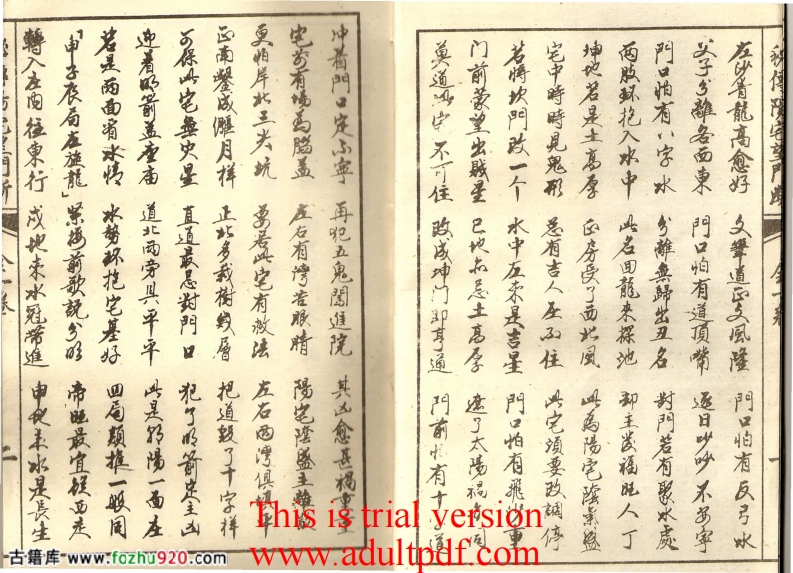 秘傳陽宅望門斷 全一卷 一
左沙青龍高愈好 文筆道正文風隆 門口怕有反弓水
父子分離各西東 門口怕有道頂 逐日吵吵不安寧
門口怕有八字水 分離無歸出丑名 對門若有聚水處
兩股環抱入水中 此名回龍來探池 卻主發福旺人丁
坤地若是土高厚 正房受了西北風 此為陽宅陰氣盛
宅中時時見鬼形 总有吉人在不住 此宅須要改調停
若將坎門改一个 水中反來是吉星 門口怕有飛
門前蒙望出賊星 巳地亦忌土高厚 遮了太陽禍
莫道此宅不可住 改成坤門即亨通 門前怕有十 道
冲着門口定不寧 再犯五鬼闖進院 其凶愈甚禍重重
宅前有場為腦蓋 左右有灣若眼睛 陽宅陰盛主離
更怕岸北三尖坑 要若此宅有救法 左右兩灣俱填平
正南鑿成偃月樣 正北多栽樹幾層 把道毀了十字樣
可保此宅無災星 直道最忌對門口 犯了明箭定主凶
迎着明箭蓋座廟 道北兩旁具平平 此是 陽一面左
若是两面省水情 水勢環抱宅基好 四局類推一般同
「申子辰局左旋龍」 紧接前歌說分明 帝旺最宜 西走
轉入左 往東行 戌地來水冠帶進 申地來水是長生
全一卷 二
This is trial version
www.adultpdf.com
古籍库 www.fozhu920.com